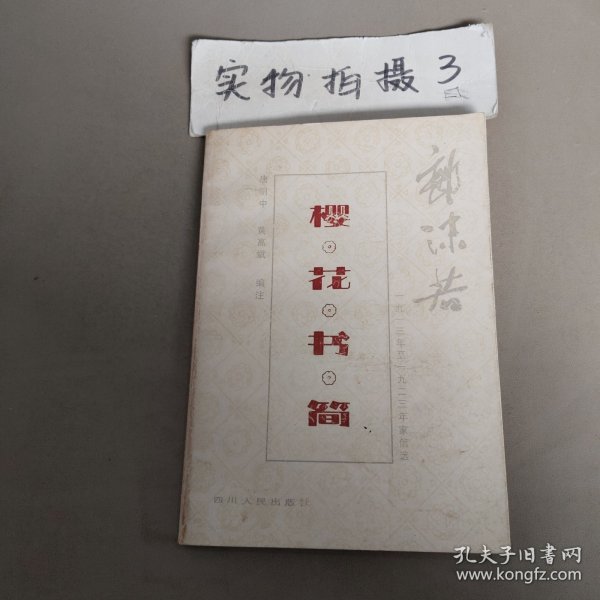 实物拍摄3
郭沫若
一九一三年至一九二三年家信选
樱·花·书·简
唐明中 黄高斌 编注
四川人民出版社
孔夫子旧书网
www.kongfz.com